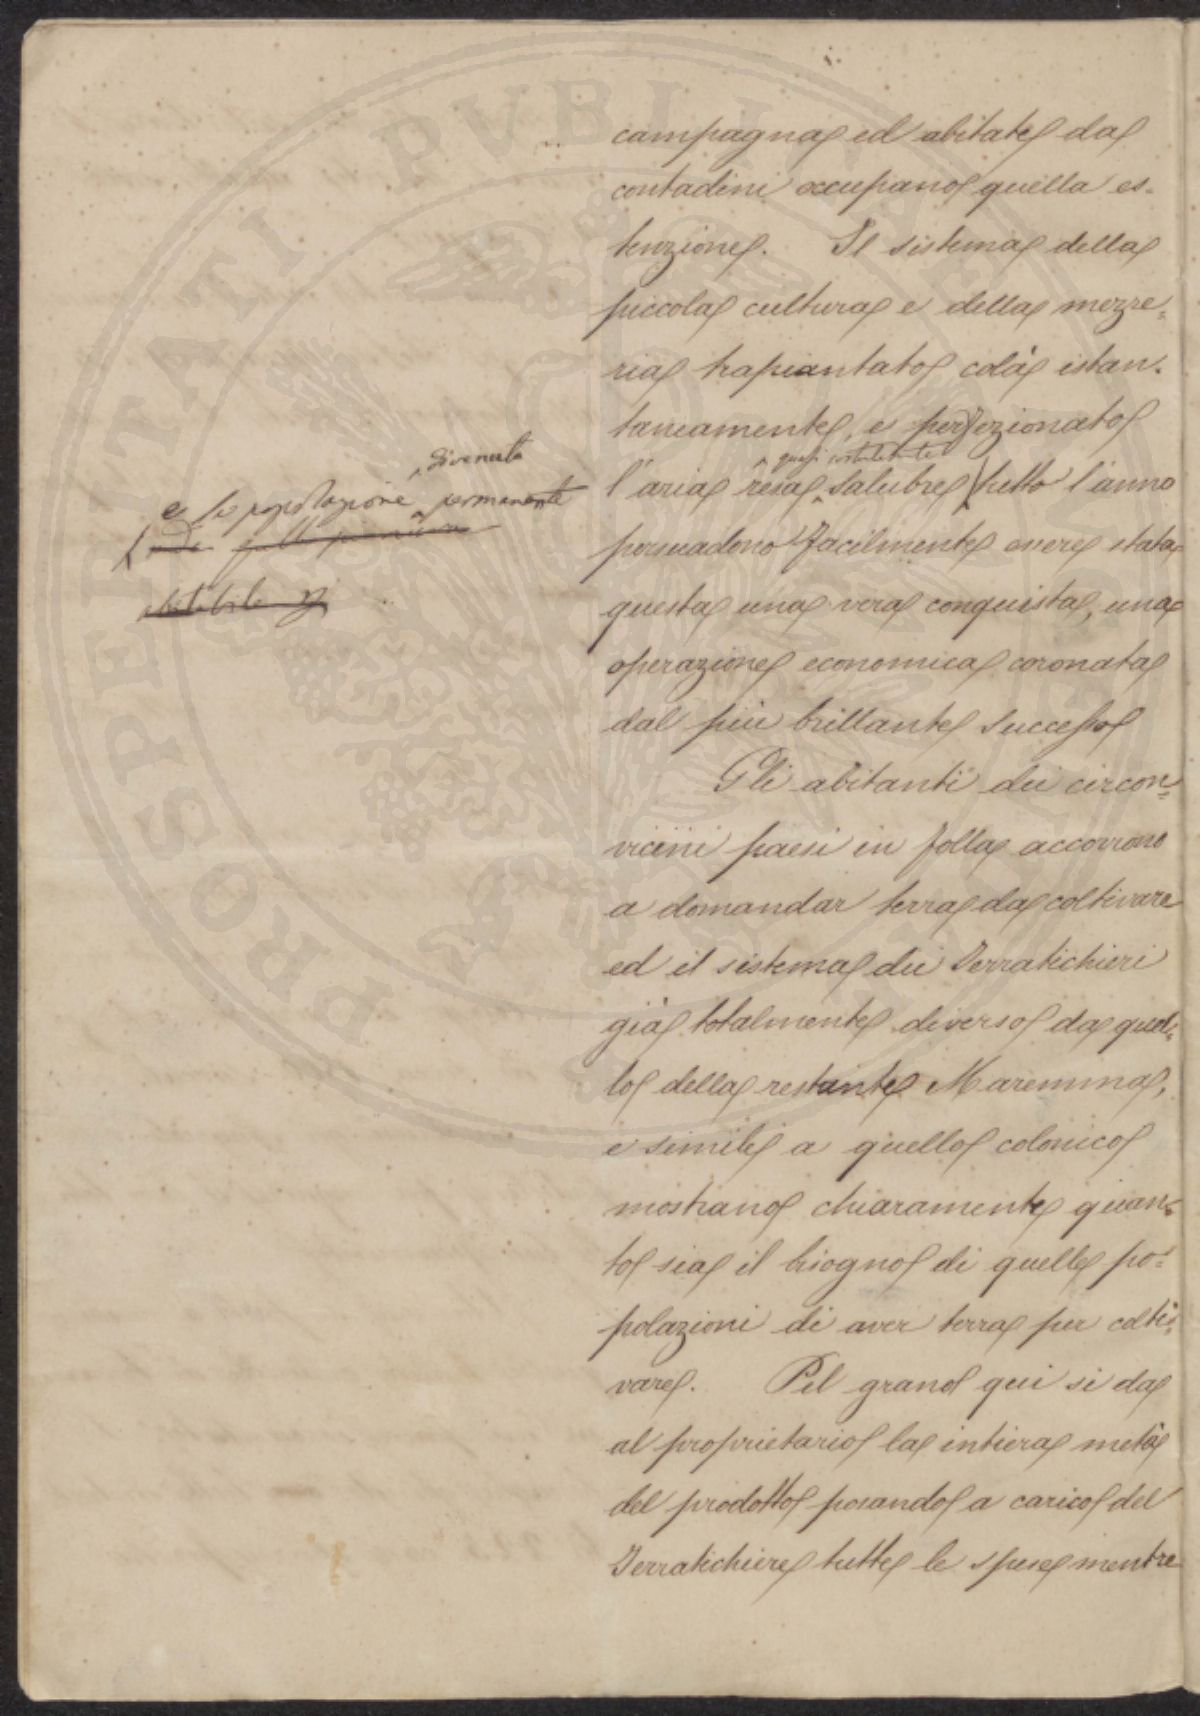 campagna ed abitate da
contadini occupano quella es-
tenzione. Il sistema della
piccola cultura e della mezze=
ria trapiantato colà istan-
taneamente, e perfezionato
quasi
l'aria resa salubre tutto l'anno
persuadono facilmente essere stata
questa una vera conquista, una
operazione economica coronata
dal più brillante successo
Gli abitanti dei circon=
vicini paesi in folla accorrono
a domandar terra da coltivare
ed il sistema dei Terratichieri
già totalmente diverso da quel=
lo della restante Maremma,
e simile a quello colonico
mostrano chiaramente quan=
to sia il bisogno di quelle po=
polazioni di aver terra per colti=
vare. Pel grano qui si da
al proprietario la intiera metà
del prodotto posando a carico del
Terratichiere tutte le spese mentre
divenuta
e la popolazione permanente
PROSPERITATI PVBLICAE